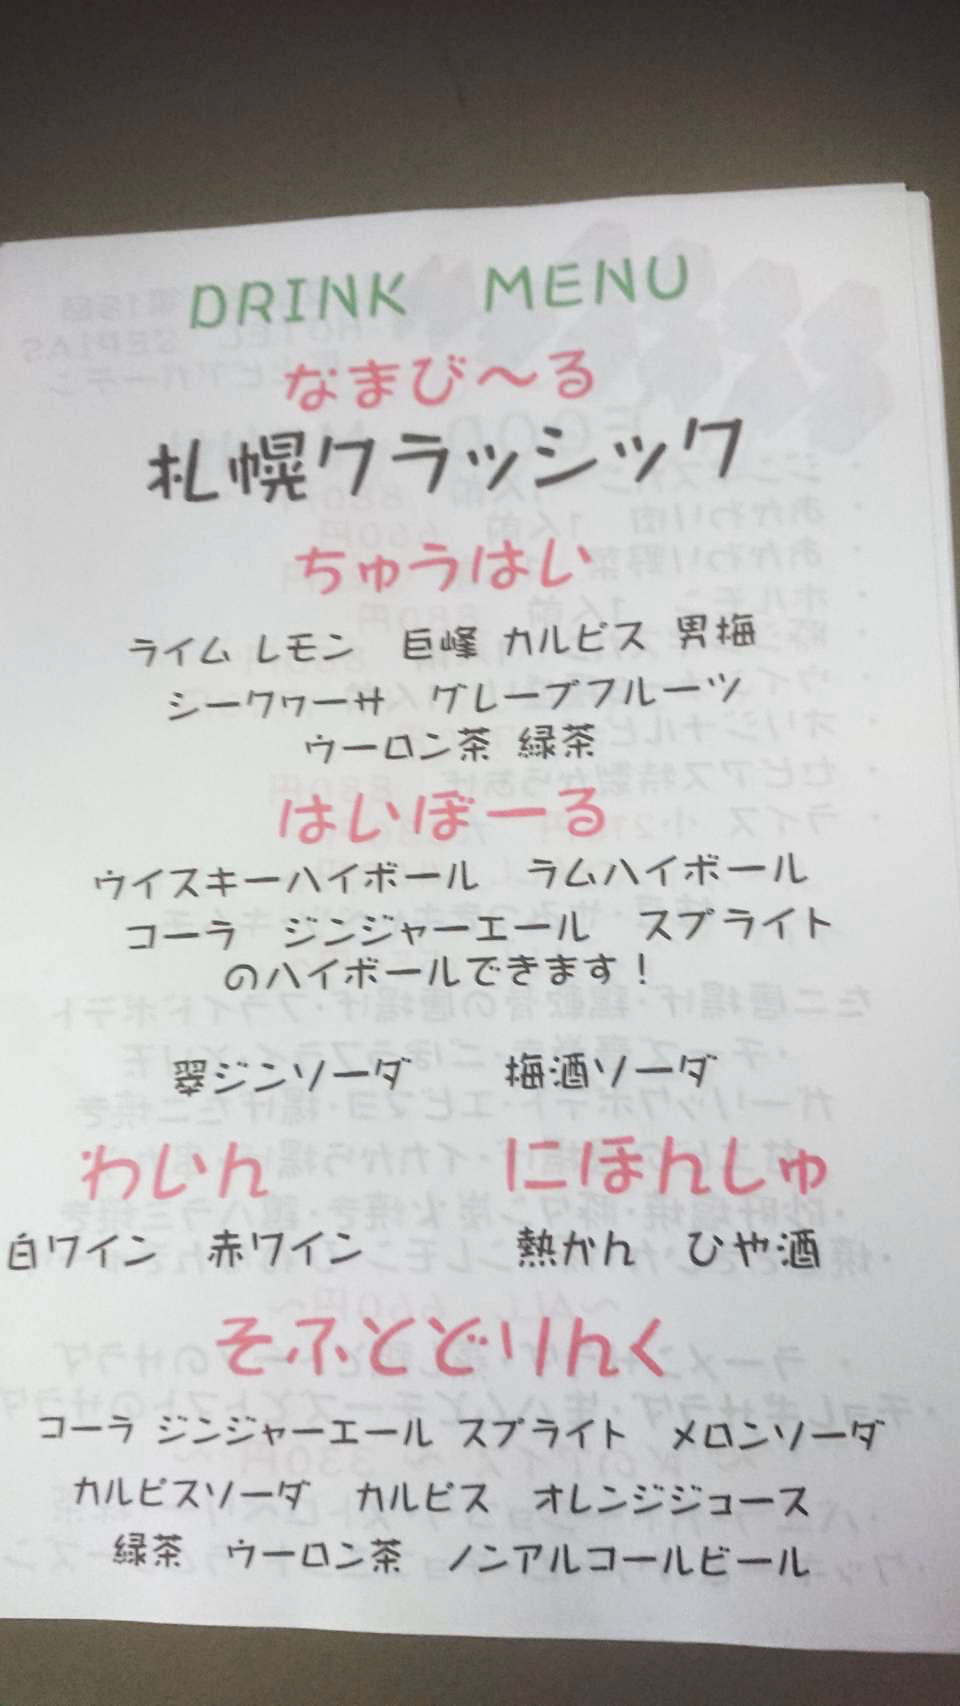 DRINK MENU
なまび～る
札幌クラッシック
ちゅうはい
ライム レモン 巨峰 カルピス 男梅
シークヮーサ グレープフルーツ
ウーロン茶 緑茶
はいぼーる
ウイスキーハイボール ラムハイボール
コーラ ジンジャーエール スプライト
のハイボールできます！
翠ジンソーダ 梅酒ソーダ
わいん にほんしゅ
白ワイン 赤ワイン 熱かん ひや酒
そふとどりんく
コーラ ジンジャーエール スプライト メロンソーダ
カルピスソーダ カルピス オレンジジュース
緑茶 ウーロン茶 ノンアルコールビール